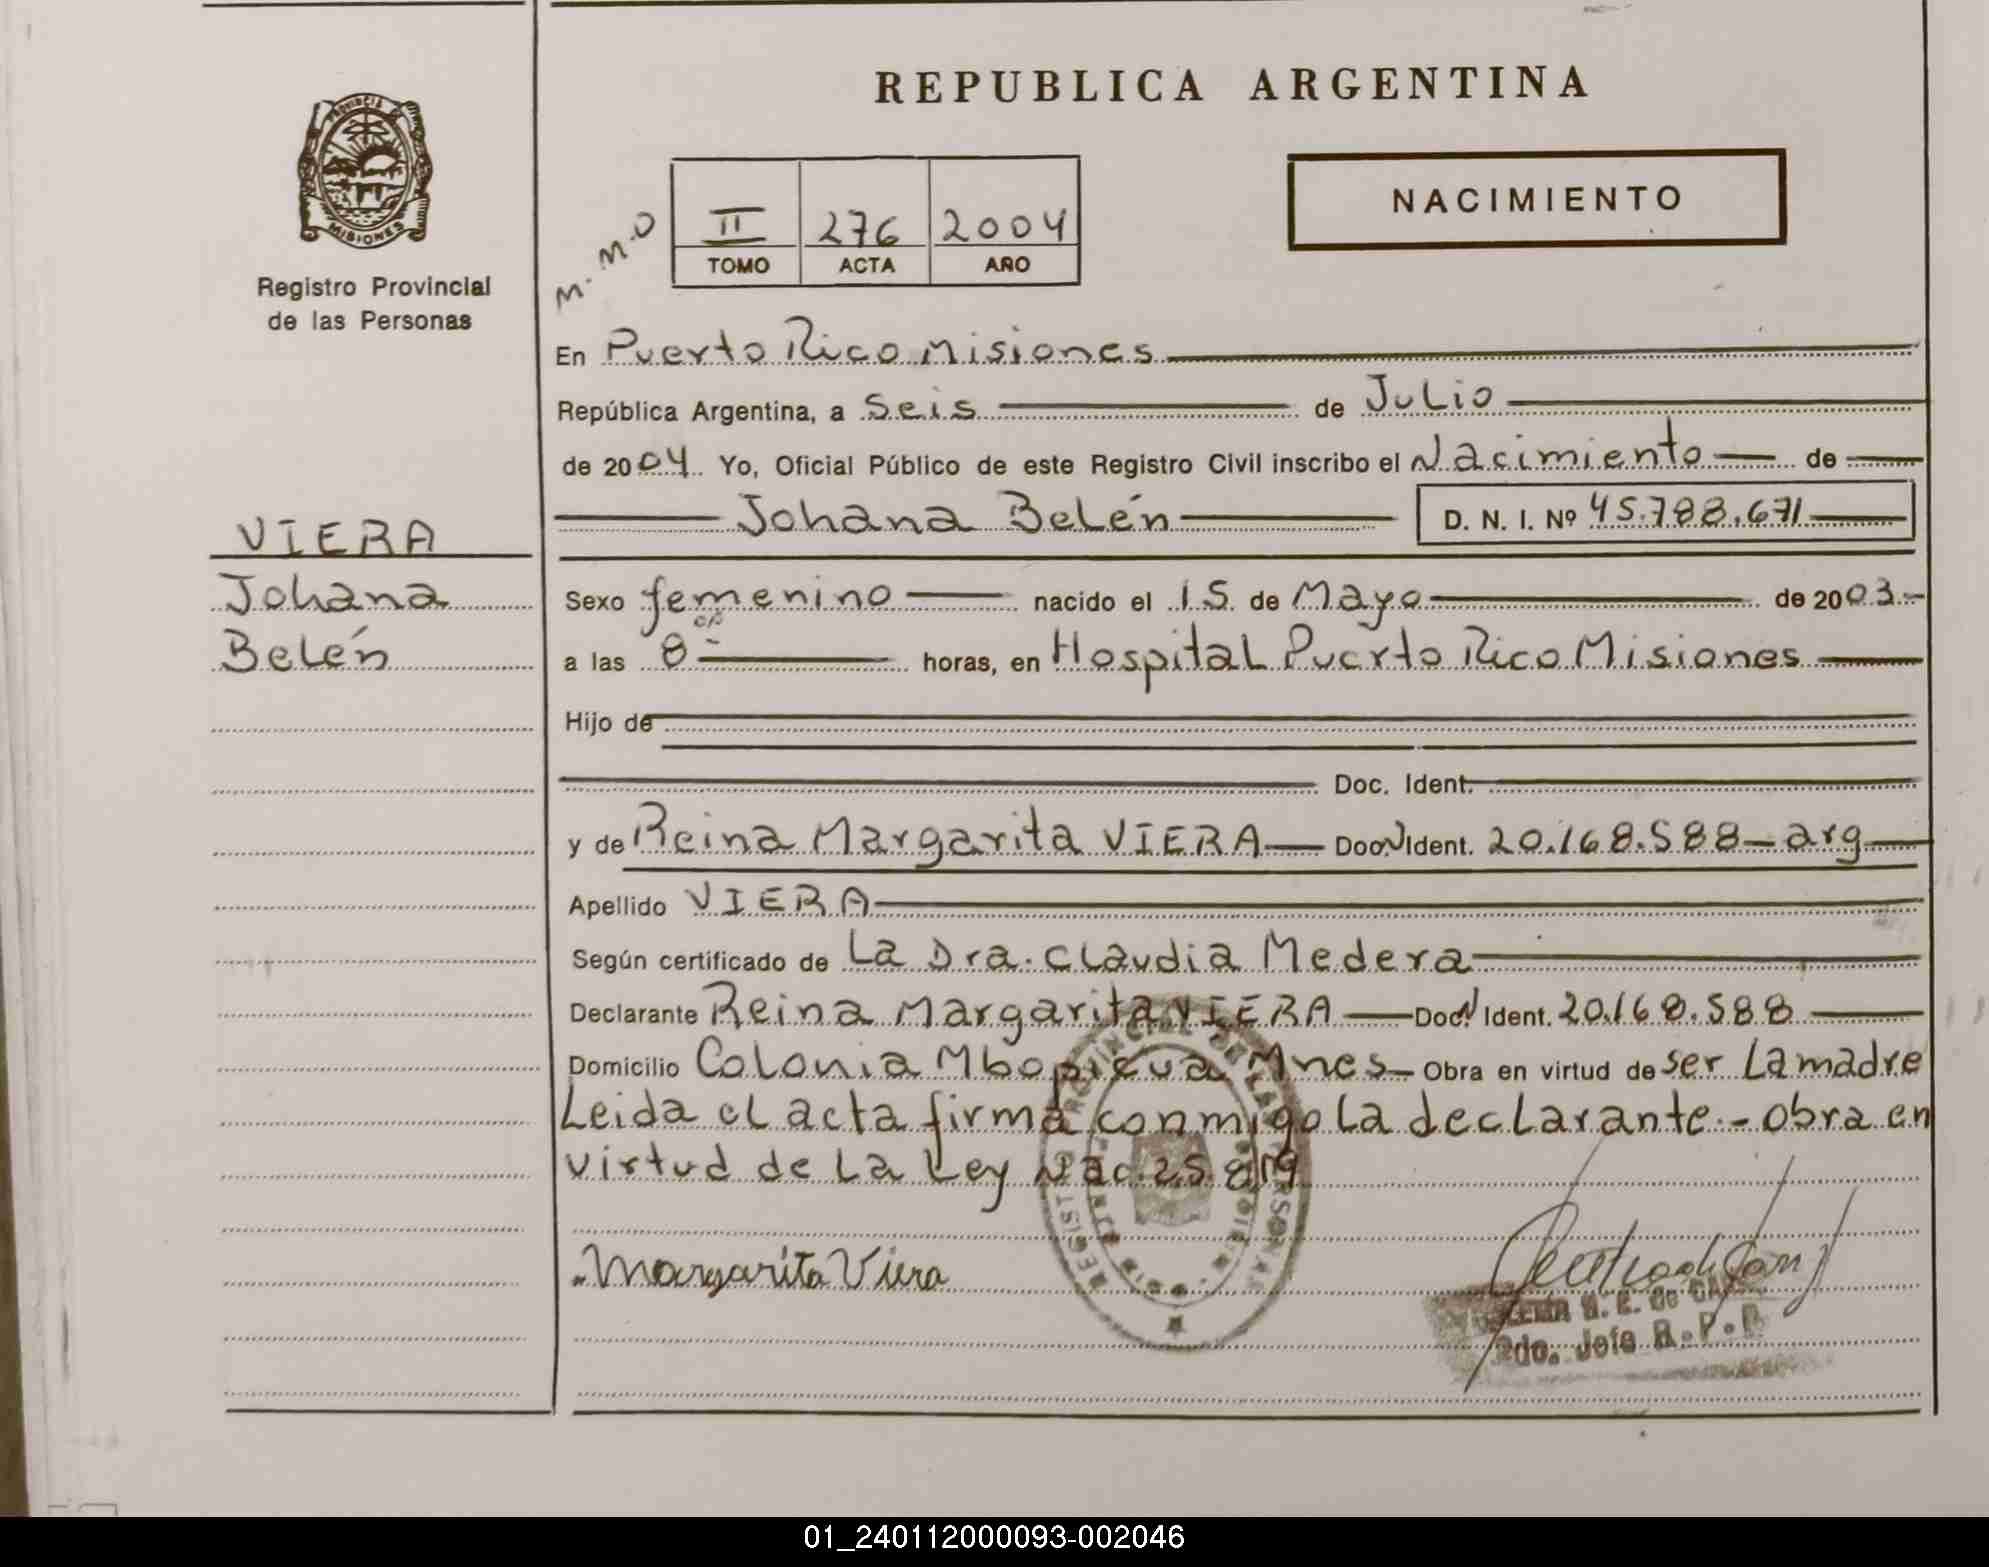 REPUBLICA ARGENTINA
PROVINCIA
MISIONES
Registro Provincial
de las Personas
NACIMIENTO
M. M.O
II 276 2004
TOMO ACTA AÑO
En Puerto Rico Misiones
República Argentina, a Seis de Julio
de 2004 Yo, Oficial Público de este Registro Civil inscribo el Nacimiento de
Johana Belén D. N. I. Nº 45.788.671
VIERA
Johana
Belén
Sexo femenino nacido el 15 de Mayo de 2003.-
a las 8 horas, en Hospital Puerto Rico Misiones
Hijo de
Doc. Ident.
y de Reina Margarita VIERA Doc. Ident. 20.168.588 - arg
Apellido VIERA
Según certificado de La Dra. Claudia Medera
Declarante Reina Margarita VIERA Doc. Ident. 20.168.588
Domicilio Colonia Mbopicua Mnes Obra en virtud de ser La madre
Leida el acta firma conmigo la declarante.- obra en
virtud de La Ley Nac. 25.819
Margarita Viera
2do. Jefe R.P.P.
01_240112000093-002046